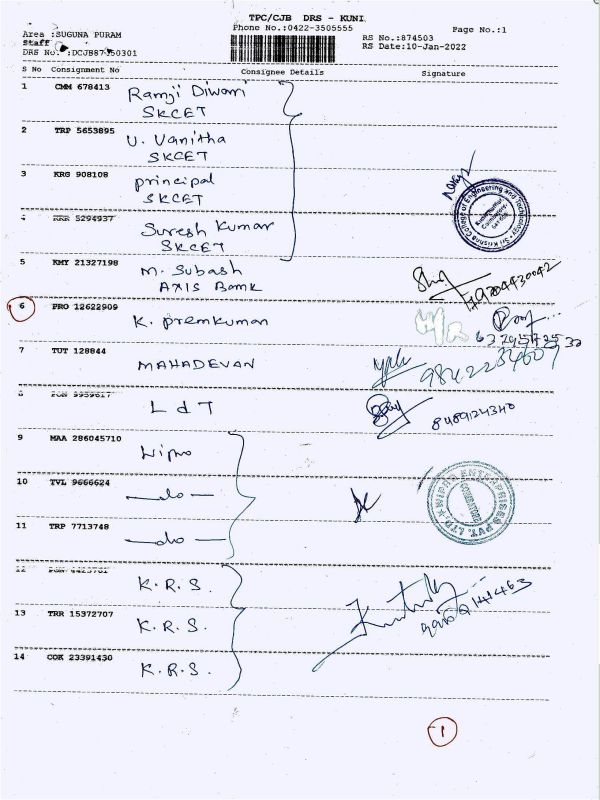 TPC/CJB DRS - KUNI
Area :SUGUNA PURAM
Phone No.:0422-3505555
Page No.:1
Staff
RS No.:874503
DRS No. :DCJB87-350301
RS Date:10-Jan-2022
S No Consignment No Consignee Details Signature
1 CMM 678413 Ramji Diwani
SKCET
2 TRP 5653895 U. Vanitha
SKCET
3 KRG 908108 principal
SKCET
Sri Krishna College of Engineering and Technology
5294937 Suresh Kumar
SKCET
5 KMY 21327198 M. Subash
AXIS Bank
6 PRO 12622909 K. Premkumar
7 TUT 128844 MAHADEVAN
8 9959617 L d T
8489124340
9 MAA 286045710 Wipro
10 TVL 9666624 do
WIPRO ENTERPRISES PVT. LTD
11 TRP 7713748 do
12 K.R.S.
13 TRR 15372707 K.R.S.
14 COK 23391430 K.R.S.
1